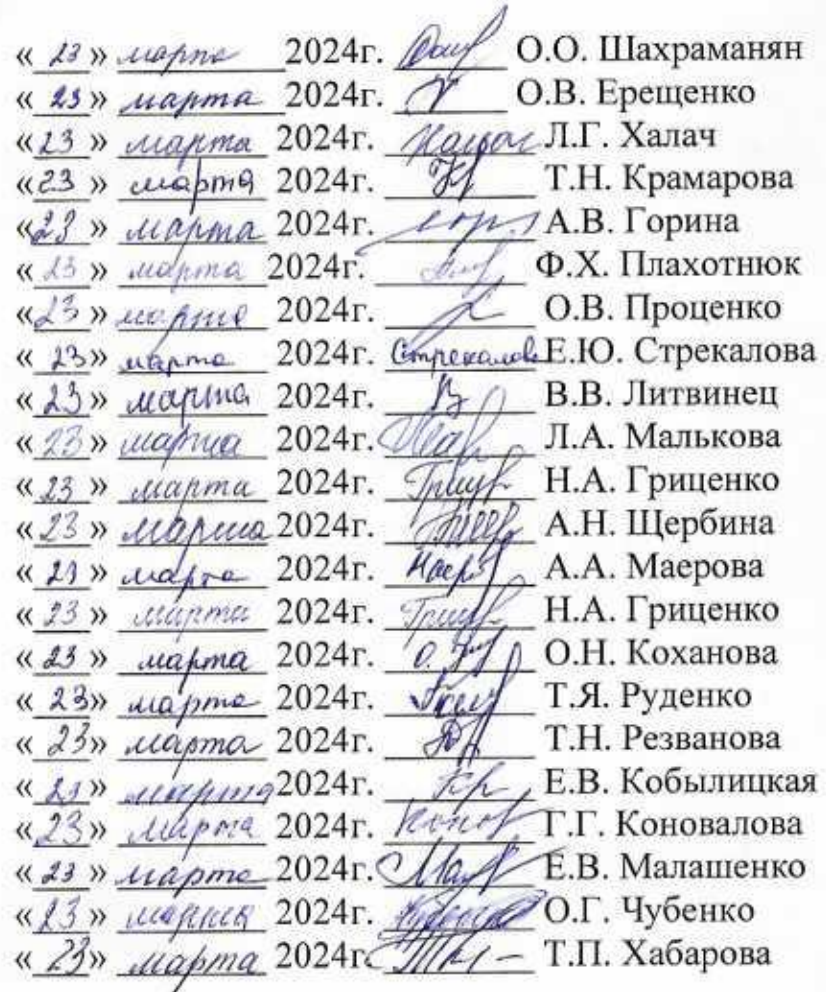 « 23 » марта 2024г. О.О. Шахраманян
« 23 » марта 2024г. О.В. Ерещенко
« 23 » марта 2024г. Л.Г. Халач
« 23 » марта 2024г. Т.Н. Крамарова
« 23 » марта 2024г. А.В. Горина
« 23 » марта 2024г. Ф.Х. Плахотнюк
« 23 » марта 2024г. О.В. Проценко
« 23 » марта 2024г. Стрекалова Е.Ю. Стрекалова
« 23 » марта 2024г. В.В. Литвинец
« 23 » марта 2024г. Л.А. Малькова
« 23 » марта 2024г. Н.А. Гриценко
« 23 » марта 2024г. А.Н. Щербина
« 23 » марта 2024г. А.А. Маерова
« 23 » марта 2024г. Н.А. Гриценко
« 23 » марта 2024г. О.Н. Коханова
« 23» марта 2024г. Т.Я. Руденко
« 23» марта 2024г. Т.Н. Резванова
« 23 » марта 2024г. Е.В. Кобылицкая
« 23 » марта 2024г. Г.Г. Коновалова
« 23 » марта 2024г. Е.В. Малашенко
« 23 » марта 2024г. О.Г. Чубенко
« 23» марта 2024г. Т.П. Хабарова